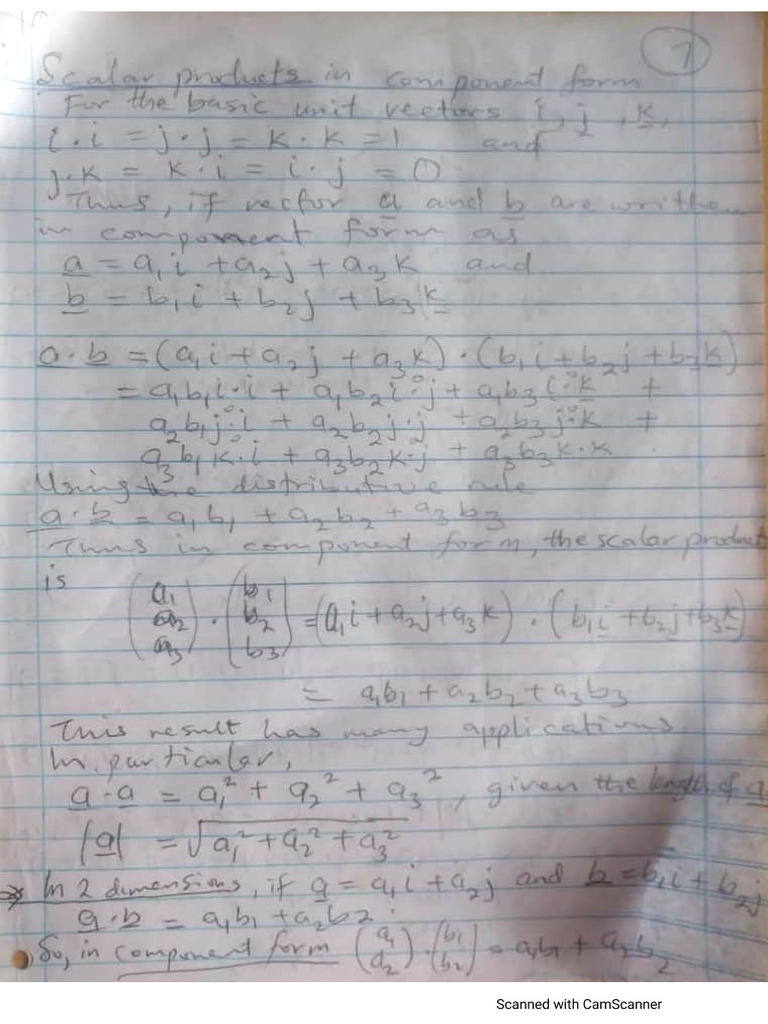 7
Scalar products in component form
For the basic unit vectors i, j, k,
i·i = j·j = k·k = 1 and
j·k = k·i = i·j = 0
Thus, if vector a and b are written
in component form as
a = a₁i + a₂j + a₃k and
b = b₁i + b₂j + b₃k
a·b = (a₁i + a₂j + a₃k)·(b₁i + b₂j + b₃k)
= a₁b₁i·i + a₁b₂i·j + a₁b₃i·k +
a₂b₁j·i + a₂b₂j·j + a₂b₃j·k +
a₃b₁k·i + a₃b₂k·j + a₃b₃k·k
Using the distributive rule
a·b = a₁b₁ + a₂b₂ + a₃b₃
Thus in component form, the scalar product
is
(a₁ a₂ a₃)·(b₁ b₂ b₃) = (a₁i + a₂j + a₃k)·(b₁i + b₂j + b₃k)
= a₁b₁ + a₂b₂ + a₃b₃
This result has many applications.
In particular,
a·a = a₁² + a₂² + a₃², given the length of a
|a| = √a₁² + a₂² + a₃²
→ In 2 dimensions, if a = a₁i + a₂j and b = b₁i + b₂j
a·b = a₁b₁ + a₂b₂.
So, in component form (a₁ a₂)·(b₁ b₂) = a₁b₁ + a₂b₂
Scanned with CamScanner